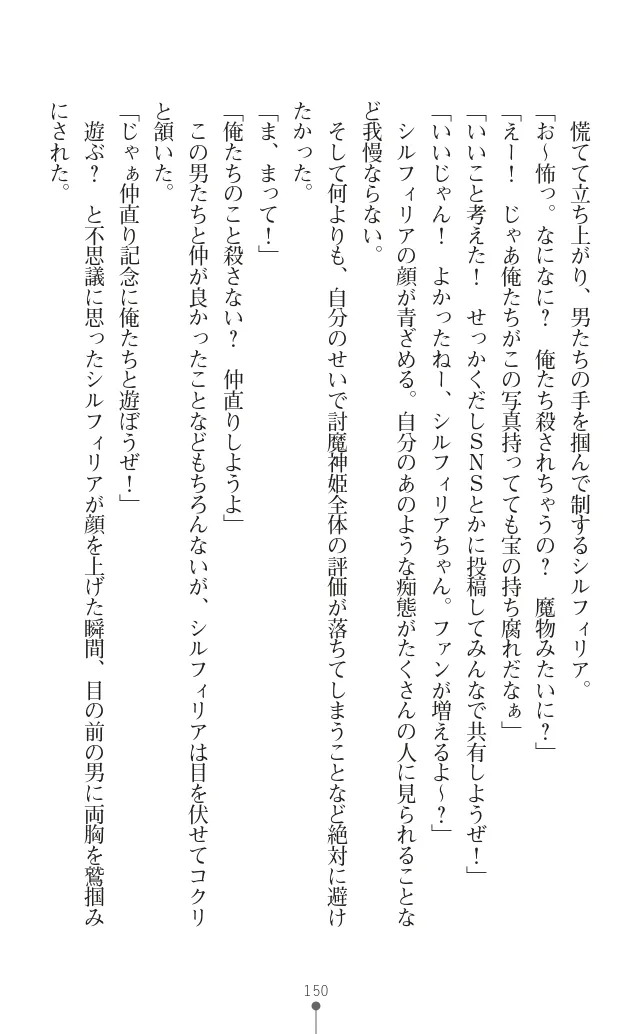 慌てて立ち上がり、男たちの手を掴んで制するシルフィリア。
「お～怖っ。なになに？　俺たち殺されちゃうの？　魔物みたいに？」
「えー！　じゃあ俺たちがこの写真持ってても宝の持ち腐れだなぁ」
「いいこと考えた！　せっかくだしＳＮＳとかに投稿してみんなで共有しようぜ！」
「いいじゃん！　よかったねー、シルフィリアちゃん。ファンが増えるよ～？」
シルフィリアの顔が青ざめる。自分のあのような痴態がたくさんの人に見られることな
ど我慢ならない。
そして何よりも、自分のせいで討魔神姫全体の評価が落ちてしまうことなど絶対に避け
たかった。
「ま、まって！」
「俺たちのこと殺さない？　仲直りしようよ」
この男たちと仲が良かったことなどもちろんないが、シルフィリアは目を伏せてコクリ
と頷いた。
「じゃぁ仲直り記念に俺たちと遊ぼうぜ！」
遊ぶ？　と不思議に思ったシルフィリアが顔を上げた瞬間、目の前の男に両胸を鷲掴み
にされた。
150